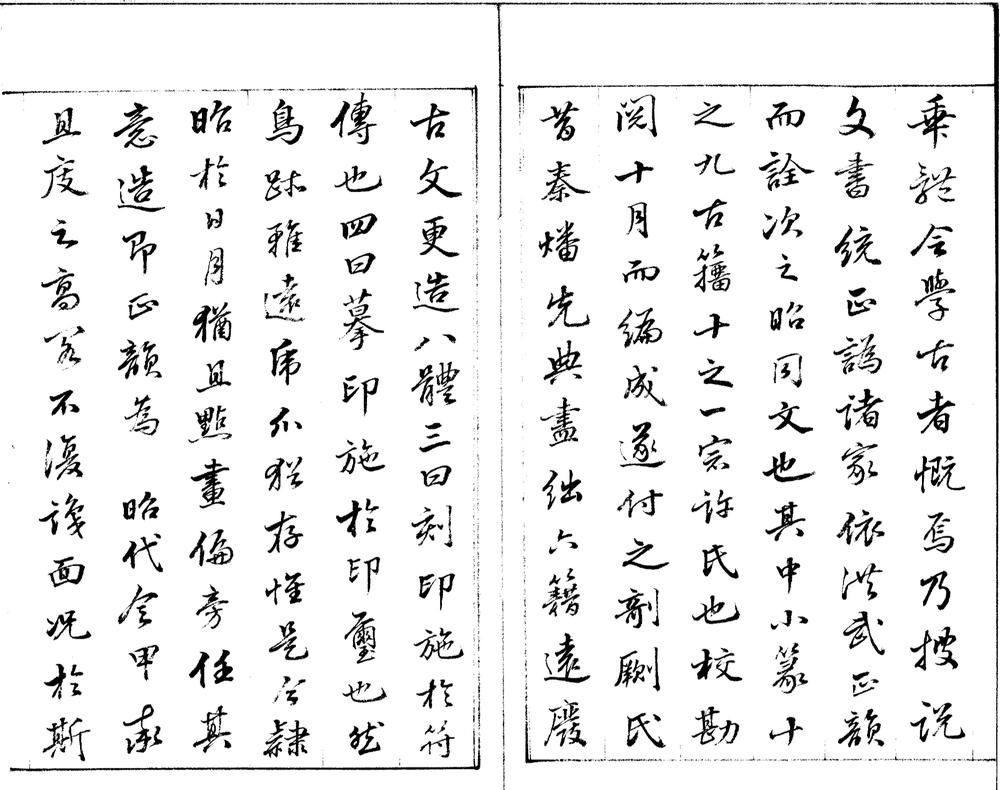 乖令學古者慨焉乃搜說
文書統正譌諸家依洪武正韻
而詮次之昭同文也其中小篆十
之九古籀十之一宗許氏也校勘
閱十月而編成遂付之剞劂氏
昔秦燔先典盡絀六籍遠廢
古文更造八體三曰刻印施於符
傳也四曰摹印施於印璽也然
鳥跡雖遠虎爪猶存惟是分隸
昭於日月猶且點畫偏旁任其
意造即正韻為 昭代令甲率
且庋之高閣不復識面況於斯